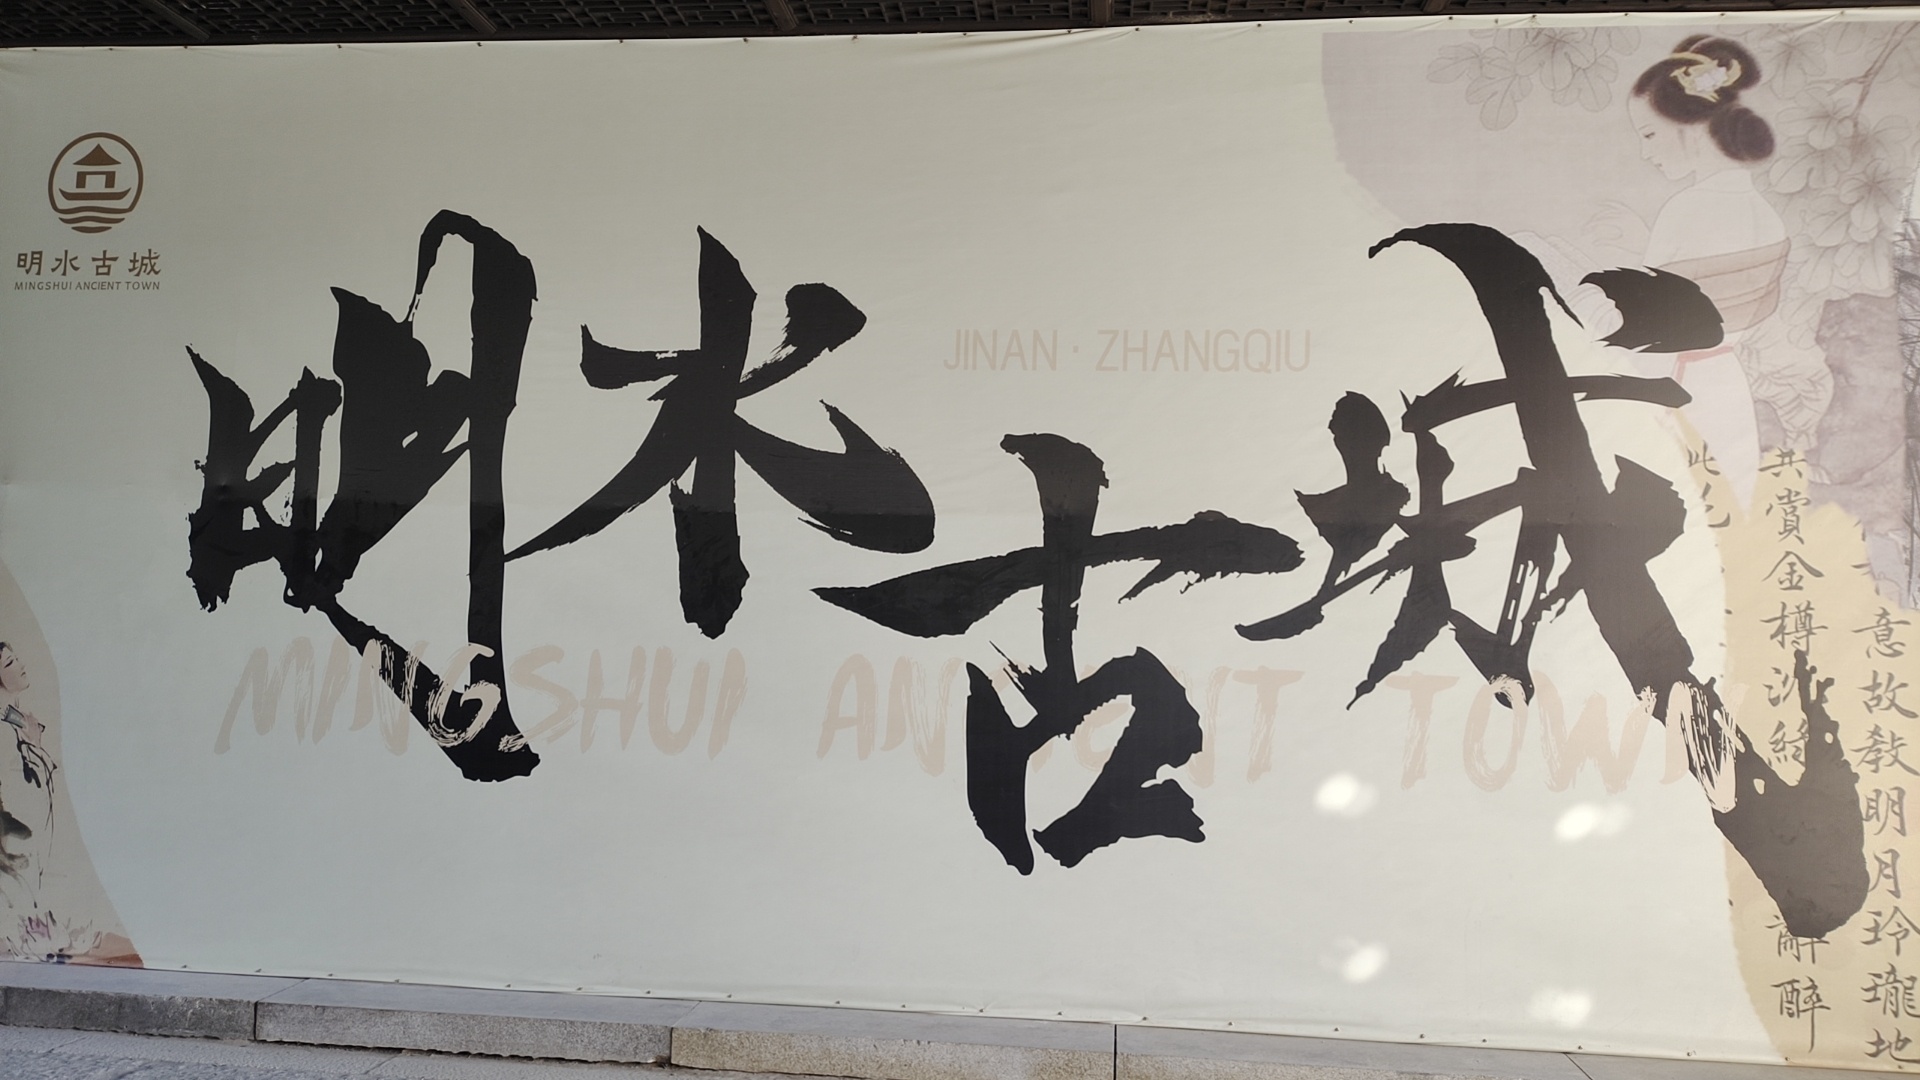 明水古城
MINGSHUI ANCIENT TOWN
JINAN · ZHANGQIU
明水古城
MINGSHUI ANCIENT TOWN
意故教明月玲瓏地
共賞金樽沈綠
辭醉
此花